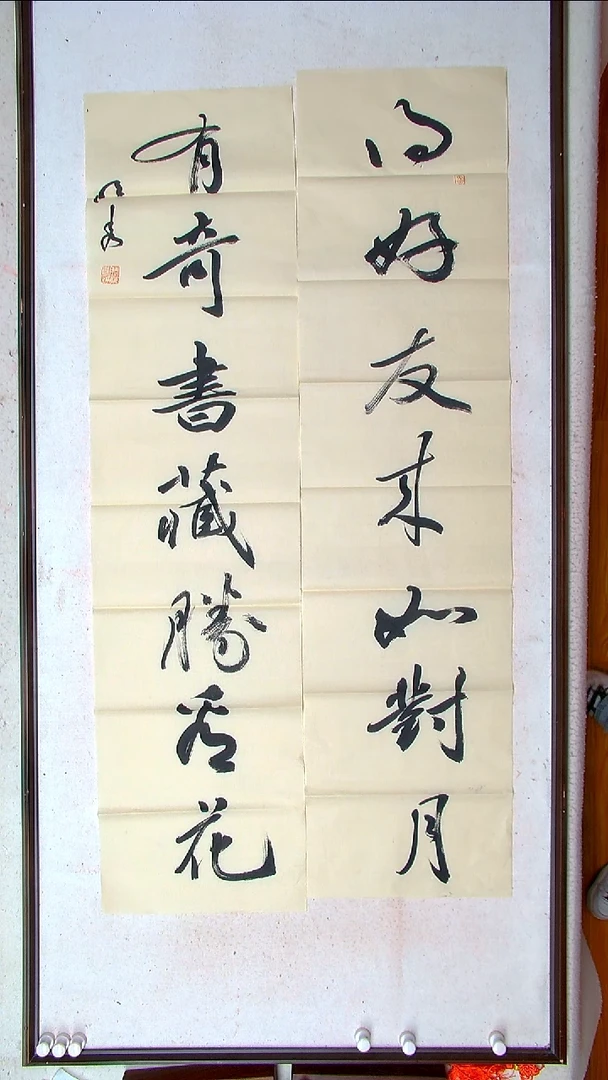 得好友来如對月
有奇書藏勝看花